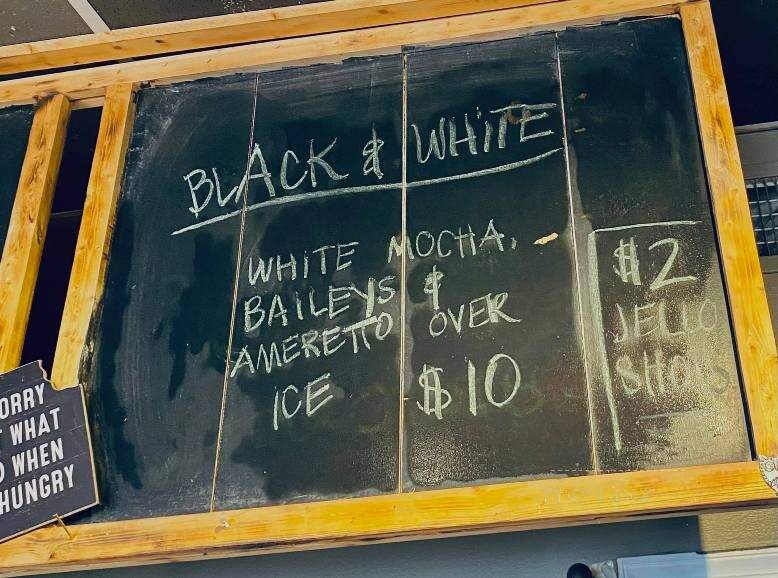 BLACK & WHITE
WHITE MOCHA,
BAILEYS &
AMERETTO OVER
ICE $10
$2
JELLO
SHOTS
ORRY
WHAT
WHEN
HUNGRY